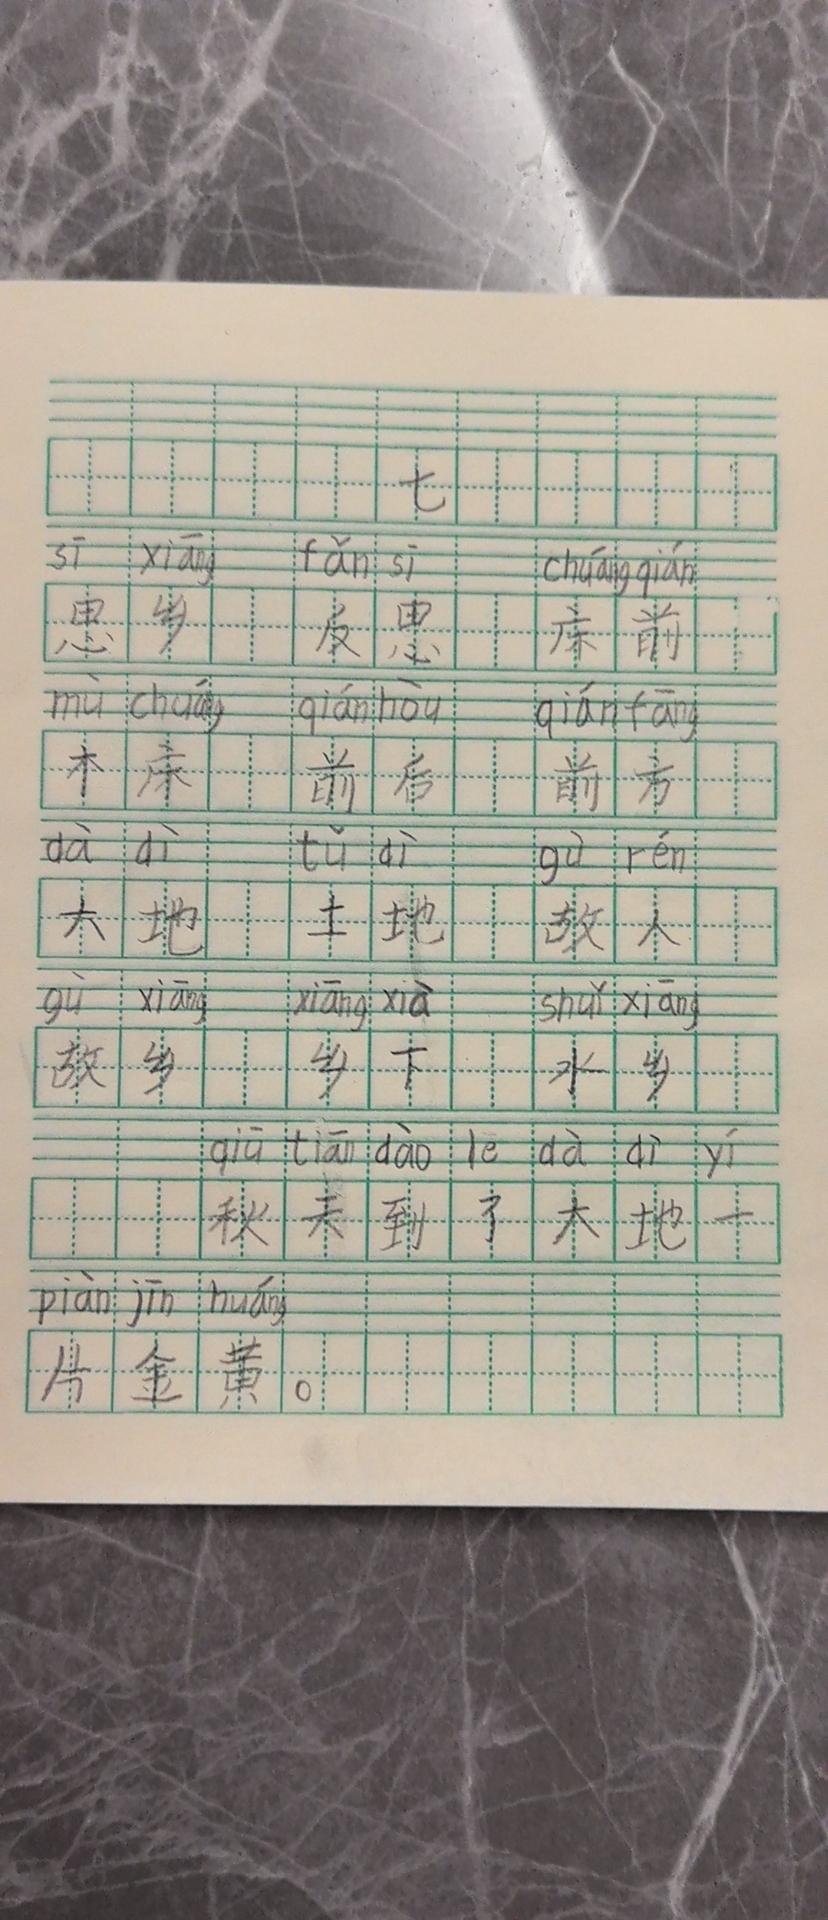 七
sī xiāng fǎn sī chuáng qián
思乡 反思 床前
mù chuáng qián hòu qián fāng
木床 前后 前方
dà dì tǔ dì gù rén
大地 土地 故人
gù xiāng xiāng xià shuǐ xiāng
故乡 乡下 水乡
qiū tiān dào le dà dì yí
秋天到了大地一
piàn jīn huáng
片金黄。